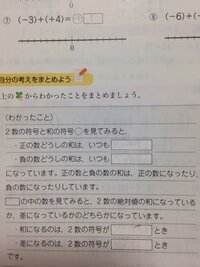 ⑦ (-3)+(+4)=
⑧ (-6)+(-
0
自分の考えをまとめよう
上の からわかったことをまとめましょう。
〈わかったこと〉
2数の符号と和の符号○を見てみると,
・正の数どうしの和は, いつも
・負の数どうしの和は, いつも
になっています。正の数と負の数の和は, 正の数になったり,
負の数になったりしています。
の中の数を見てみると, 2数の絶対値の和になっている
か, 差になっているかのどちらかになっています。
・和になるのは, 2数の符号が とき
・差になるのは, 2数の符号が とき
です。